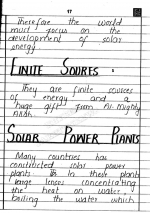 17
Therefore the world
must focus on the
development of solar
energy
FINITE SOURES :
They are finite sources
of energy and a
huge gift from Al-Mighty
Allah.
SOLAR POWER PLANTS
Many countries has
constructed solar power
plants In these plants
large lenses concentrating
the heat on water,
boiling the water which